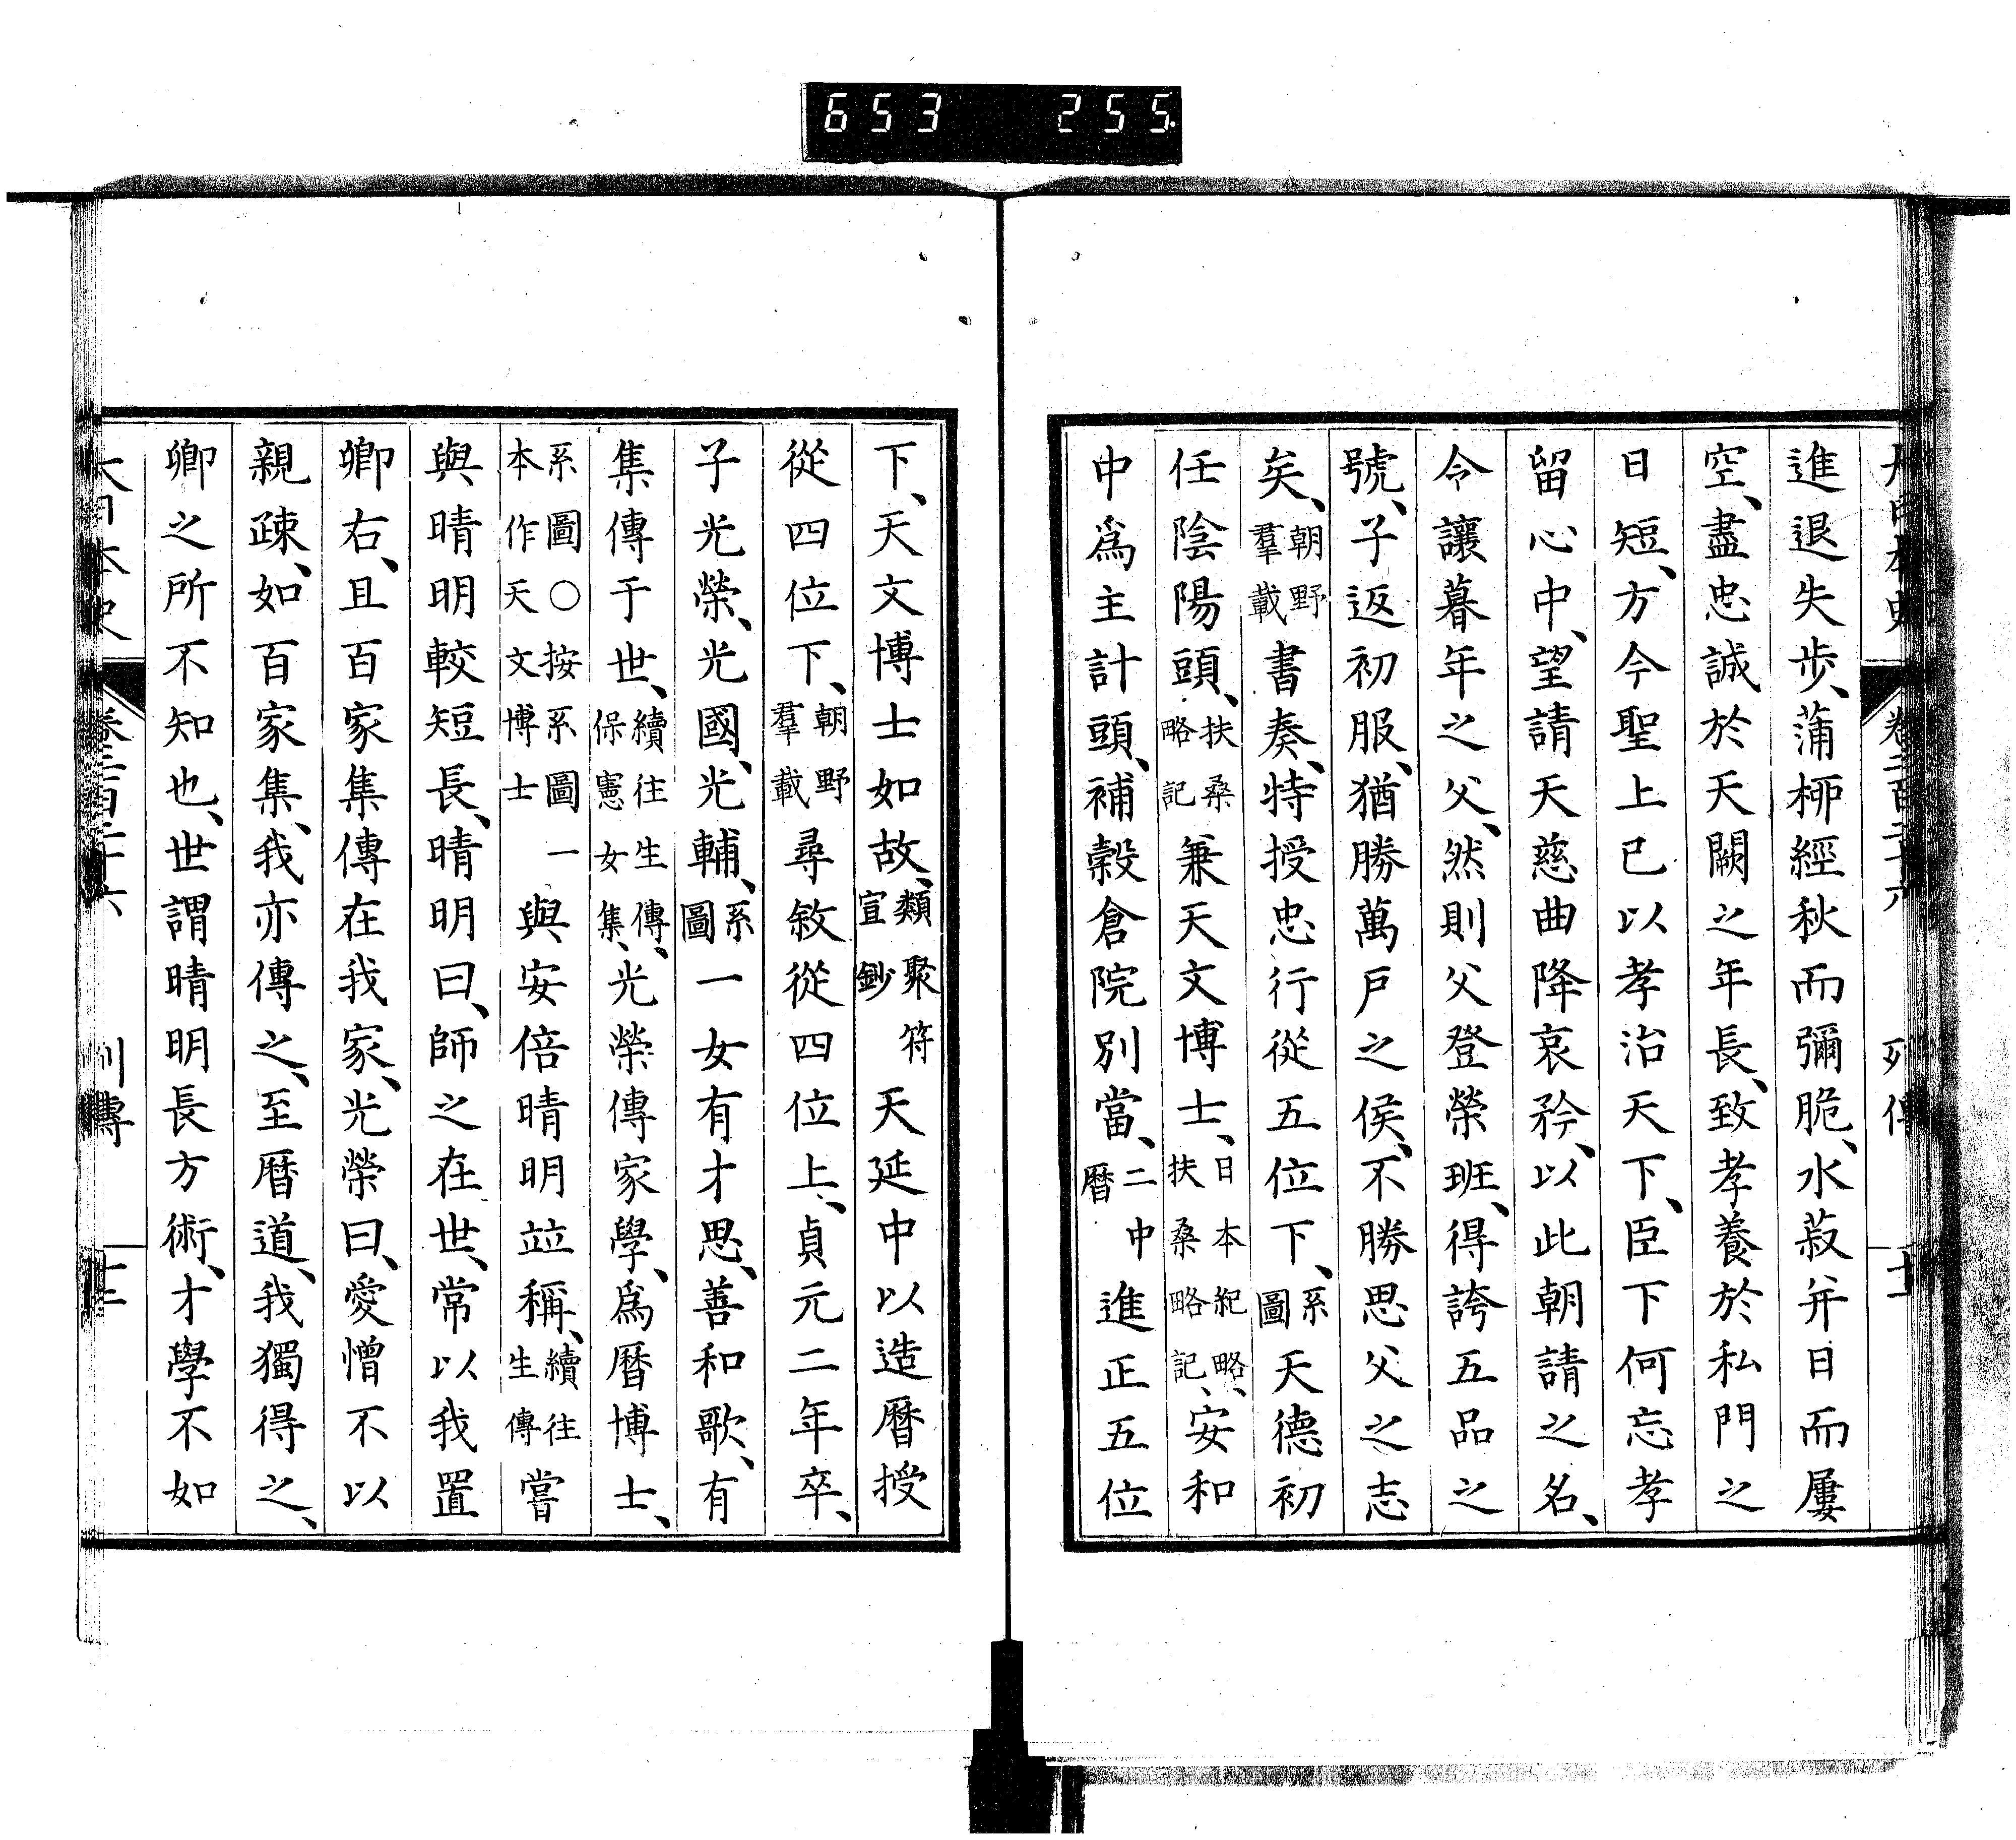 653 255
進退失步、蒲桺經秋而彌脆、水菽并日而屢
空、盡忠誠於天闕之年長、致孝養於私門之
日短、方今聖上已以孝治天下、臣下何忘孝
留心中、望請天慈曲降哀矜、以此朝請之名、
令讓暮年之父、然則父登榮班、得誇五品之
號、子返初服、猶勝萬戶之侯、不勝思父之志
矣、朝野羣載書奏、特授忠行從五位下、系圖天德初
任陰陽頭、扶桑略記兼天文博士、日本紀略、扶桑略記、安和
中爲主計頭、補穀倉院別當、二中曆進正五位
下、天文博士如故、類聚符宣鈔天延中以造曆授
從四位下、朝野羣載尋敘從四位上、貞元二年卒、
子光榮、光國、光輔、系圖一女有才思、善和歌、有
集傳于世、續往生傳、保憲女集、光榮傳家學、爲曆博士、
系圖○按系圖一本作天文博士與安倍晴明竝稱、續往生傳嘗
與晴明較短長、晴明曰、師之在世、常以我置
卿右、且百家集傳在我家、光榮曰、愛憎不以
親疎、如百家集、我亦傳之、至曆道、我獨得之、
卿之所不知也、世謂晴明長方術、才學不如
大日本史 卷二百二十六 列傳